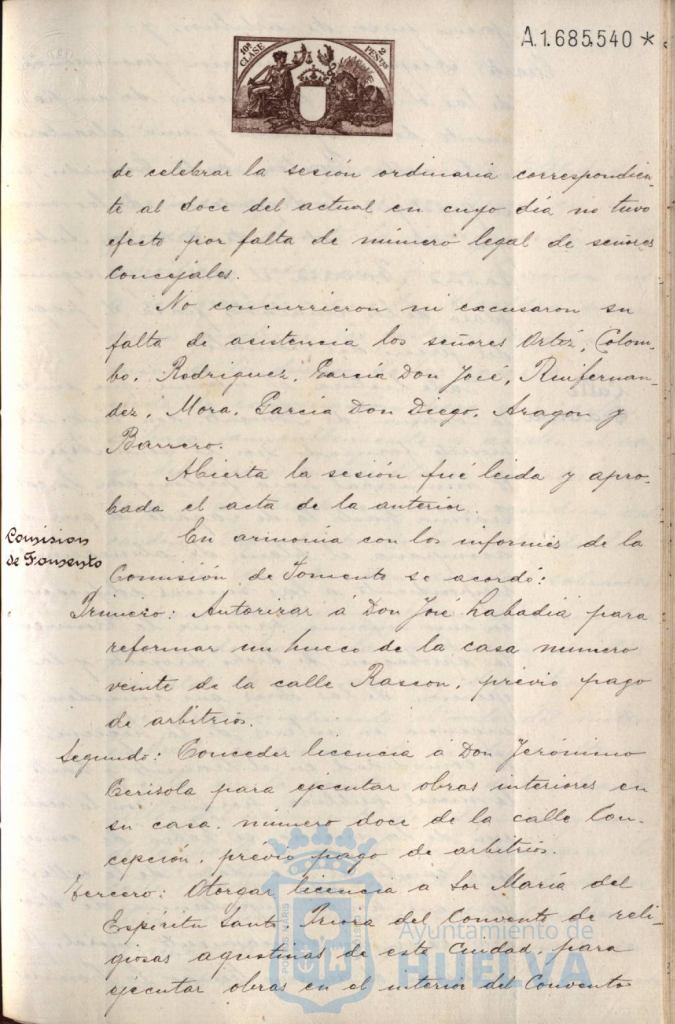 A.1.685.540 *
10ª CLASE 2 PESTAS
de celebrar la sesión ordinaria correspondien-
te al doce del actual en cuyo dia no tuvo
efecto por falta de número legal de señores
Concejales.
No concurrieron ni excusaron su
falta de asistencia los señores Ortiz, Colom-
bo, Rodriguez, García Don José, Ruifernan-
dez, Mora, García Don Diego, Aragon y
Barrero.
Abierta la sesión fué leida y apro-
bada el acta de la anterior.
Comision
de Fomento
En armonia con los informes de la
Comisión de Fomento se acordó:
Primero: Autorizar á Don José Labadia para
reformar un hueco de la casa número
veinte de la calle Rascon, previo pago
de arbitrios.
Segundo: Conceder licencia á Don Jerónimo
Cerisola para ejecutar obras interiores en
su casa, número doce de la calle Con-
cepción, previo pago de arbitrios.
Tercero: Otorgar licencia a Sor María del
Espíritu Santo Priora del Convento de reli-
giosas agustinas de esta Ciudad, para
ejecutar obras en el interior del Convento
Ayuntamiento de
HUELVA